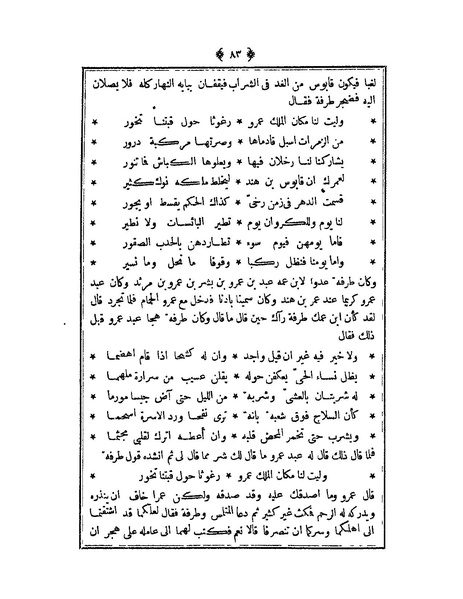 ﴿ ٨٣ ﴾
لغبا فيكون قابوس من الغد فى الشراب فيقفان ببابه النهار كله فلا يصلان
اليه فضجر طرفة فقال
* وليت لنا مكان الملك عمرو * رغوثا حول قبتنا تخور *
* من الزمرات اسبل قادماها * وضرتها مركبة درور *
* يشاركنا لنا رخلان فيها * ويعلوها الكباش فما تنور *
* لعمرك ان قابوس بن هند * ليخلط ملكه نوك كثير *
* قسمت الدهر فى زمن رخىّ * كذاك الحكم يقسط او يجور *
* لنا يوم وللكروان يوم * تطير البائسات ولا نطير *
* فاما يومهن فيوم سوء * تطاردهن بالحدب الصقور *
* واما يومنا فنظل ركبا * وقوفا ما نحل وما نسير *
وكان طرفة عدوا لابن عمه عبد بن عمرو بن بشر بن عمرو بن مرثد وكان عبد
عمرو كريما عند عمر بن هند وكان سمينا بادنا فدخل مع عمرو الحمام فلما تجرد قال
لقد كأن ابن عمك طرفة رآك حين قال ما قال وكان طرفة هجا عبد عمرو قبل
ذلك فقال
* ولا خير فيه غير ان قيل واجد * وان له كشحا اذا قام اهضما *
* يظل نساء الحىّ يعكفن حوله * يقلن عسيب من سرارة ملهما *
* له شربتان بالعشىّ وشربة * من الليل حتى آض جبسا مورما *
* كأن السلاح فوق شعبة بانة * ترى نفحا ورد الاسرة اسحما *
* ويشرب حتى تخمر المحض قلبه * وان أعطه اترك لقلبى مجثما *
فلما قال ذلك قال له عبد عمرو ما قال لك شر مما قال لى ثم انشده قول طرفة
* وليت لنا مكان الملك عمرو * رغوثا حول قبتنا تخور *
قال عمرو وما اصدقك عليه وقد صدقه ولكن عمرا خاف ان ينذره
ويدركه له الرحم فمكث غير كثير ثم دعا المتلمس وطرفة فقال لعلكما قد اشتقتما
الى اهلكما وسركما ان تنصرفا قالا نعم فكتب لهما الى عامله على هجر ان